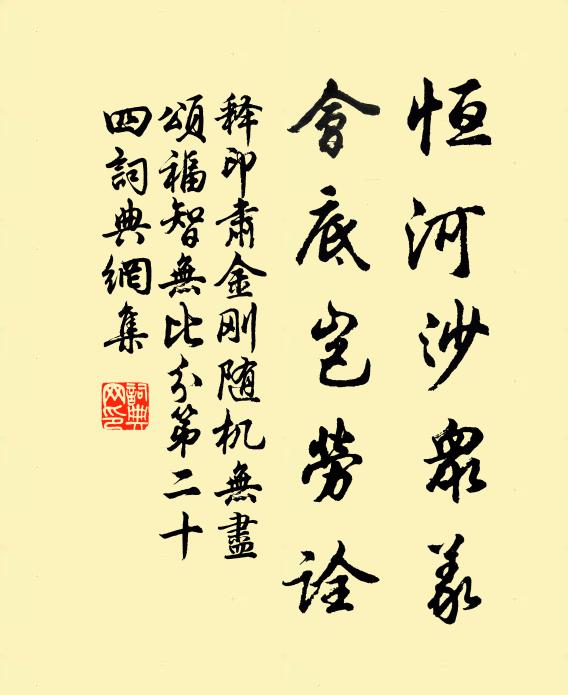 恒河沙眾義
會底豈勞詮
释印肃金刚随机無盡
頌福智無比分第二十
四詞典網集
詞典
网印